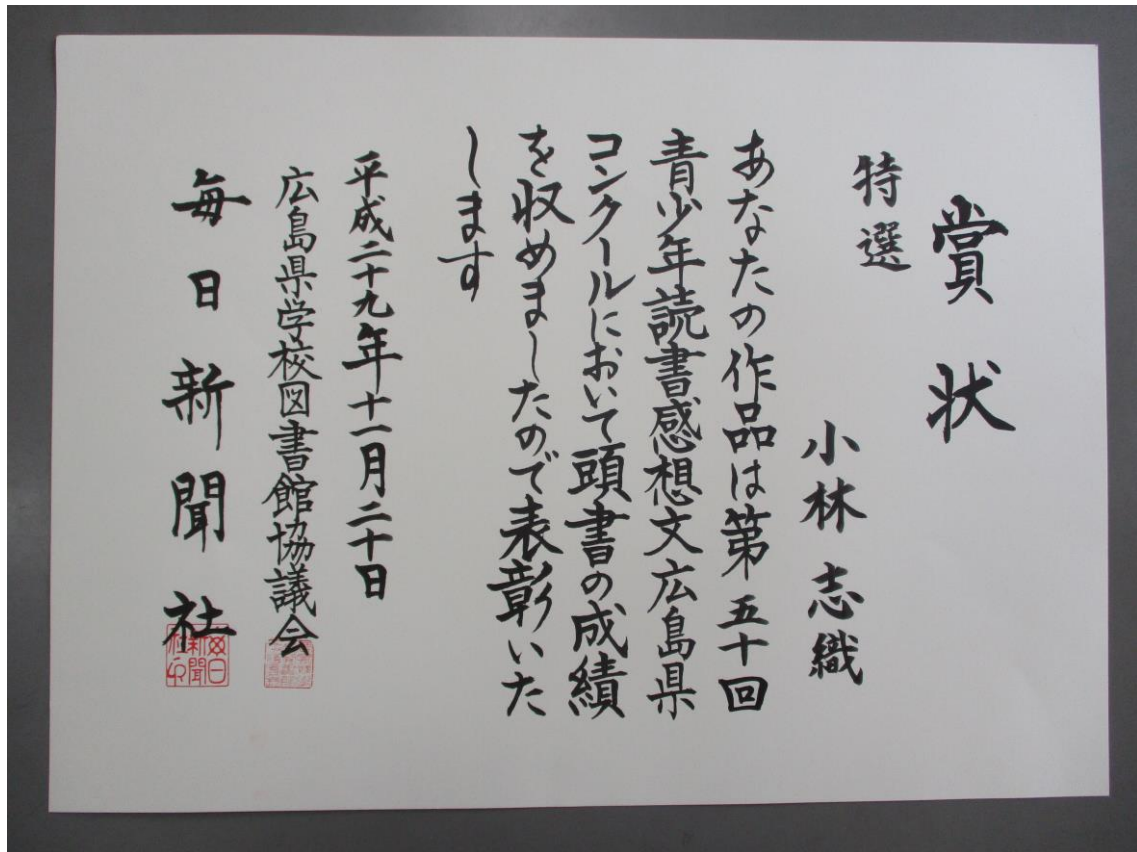 賞状
特選
小林志織
あなたの作品は第五十回
青少年読書感想文広島県
コンクールにおいて頭書の成績
を収めましたので表彰いた
します
平成二十九年十一月二十日
広島県学校図書館協議会
毎日新聞社
毎日
新聞
社印